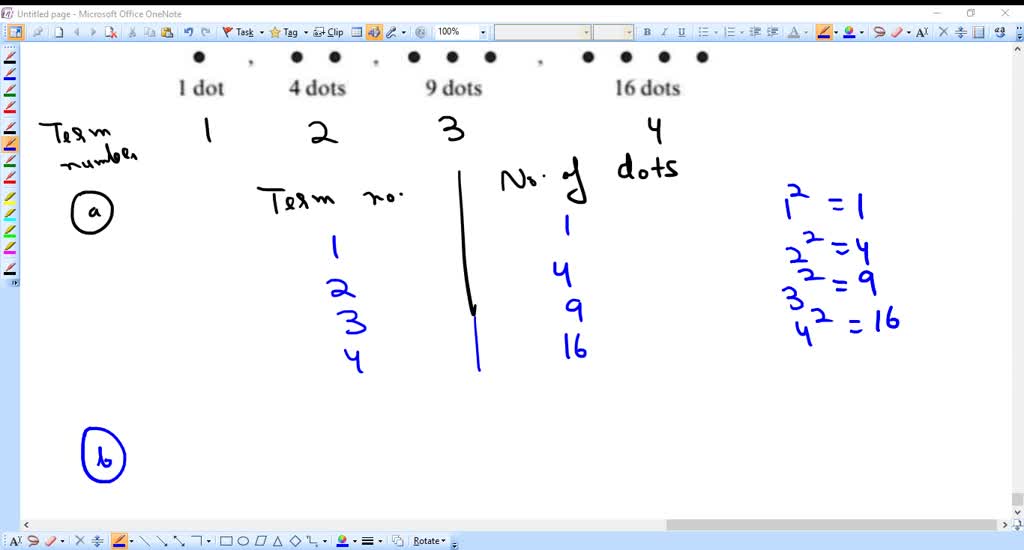 Untitled page - Microsoft Office OneNote
Task Tag Clip 100% B I U
1 dot , 4 dots , 9 dots , 16 dots
Term number 1 2 3 4
a
Term no. No. of dots
1 1
2 4
3 9
4 16
1² = 1
2² = 4
3² = 9
4² = 16
b
Rotate